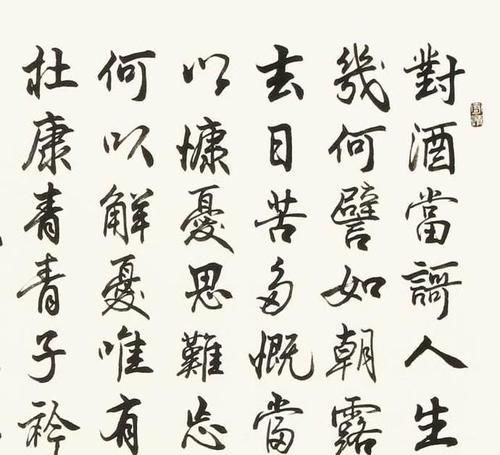 對酒當謌人生
幾何譬如朝露
去日苦多慨當
以慷憂思難忘
何以解憂唯有
杜康青青子衿